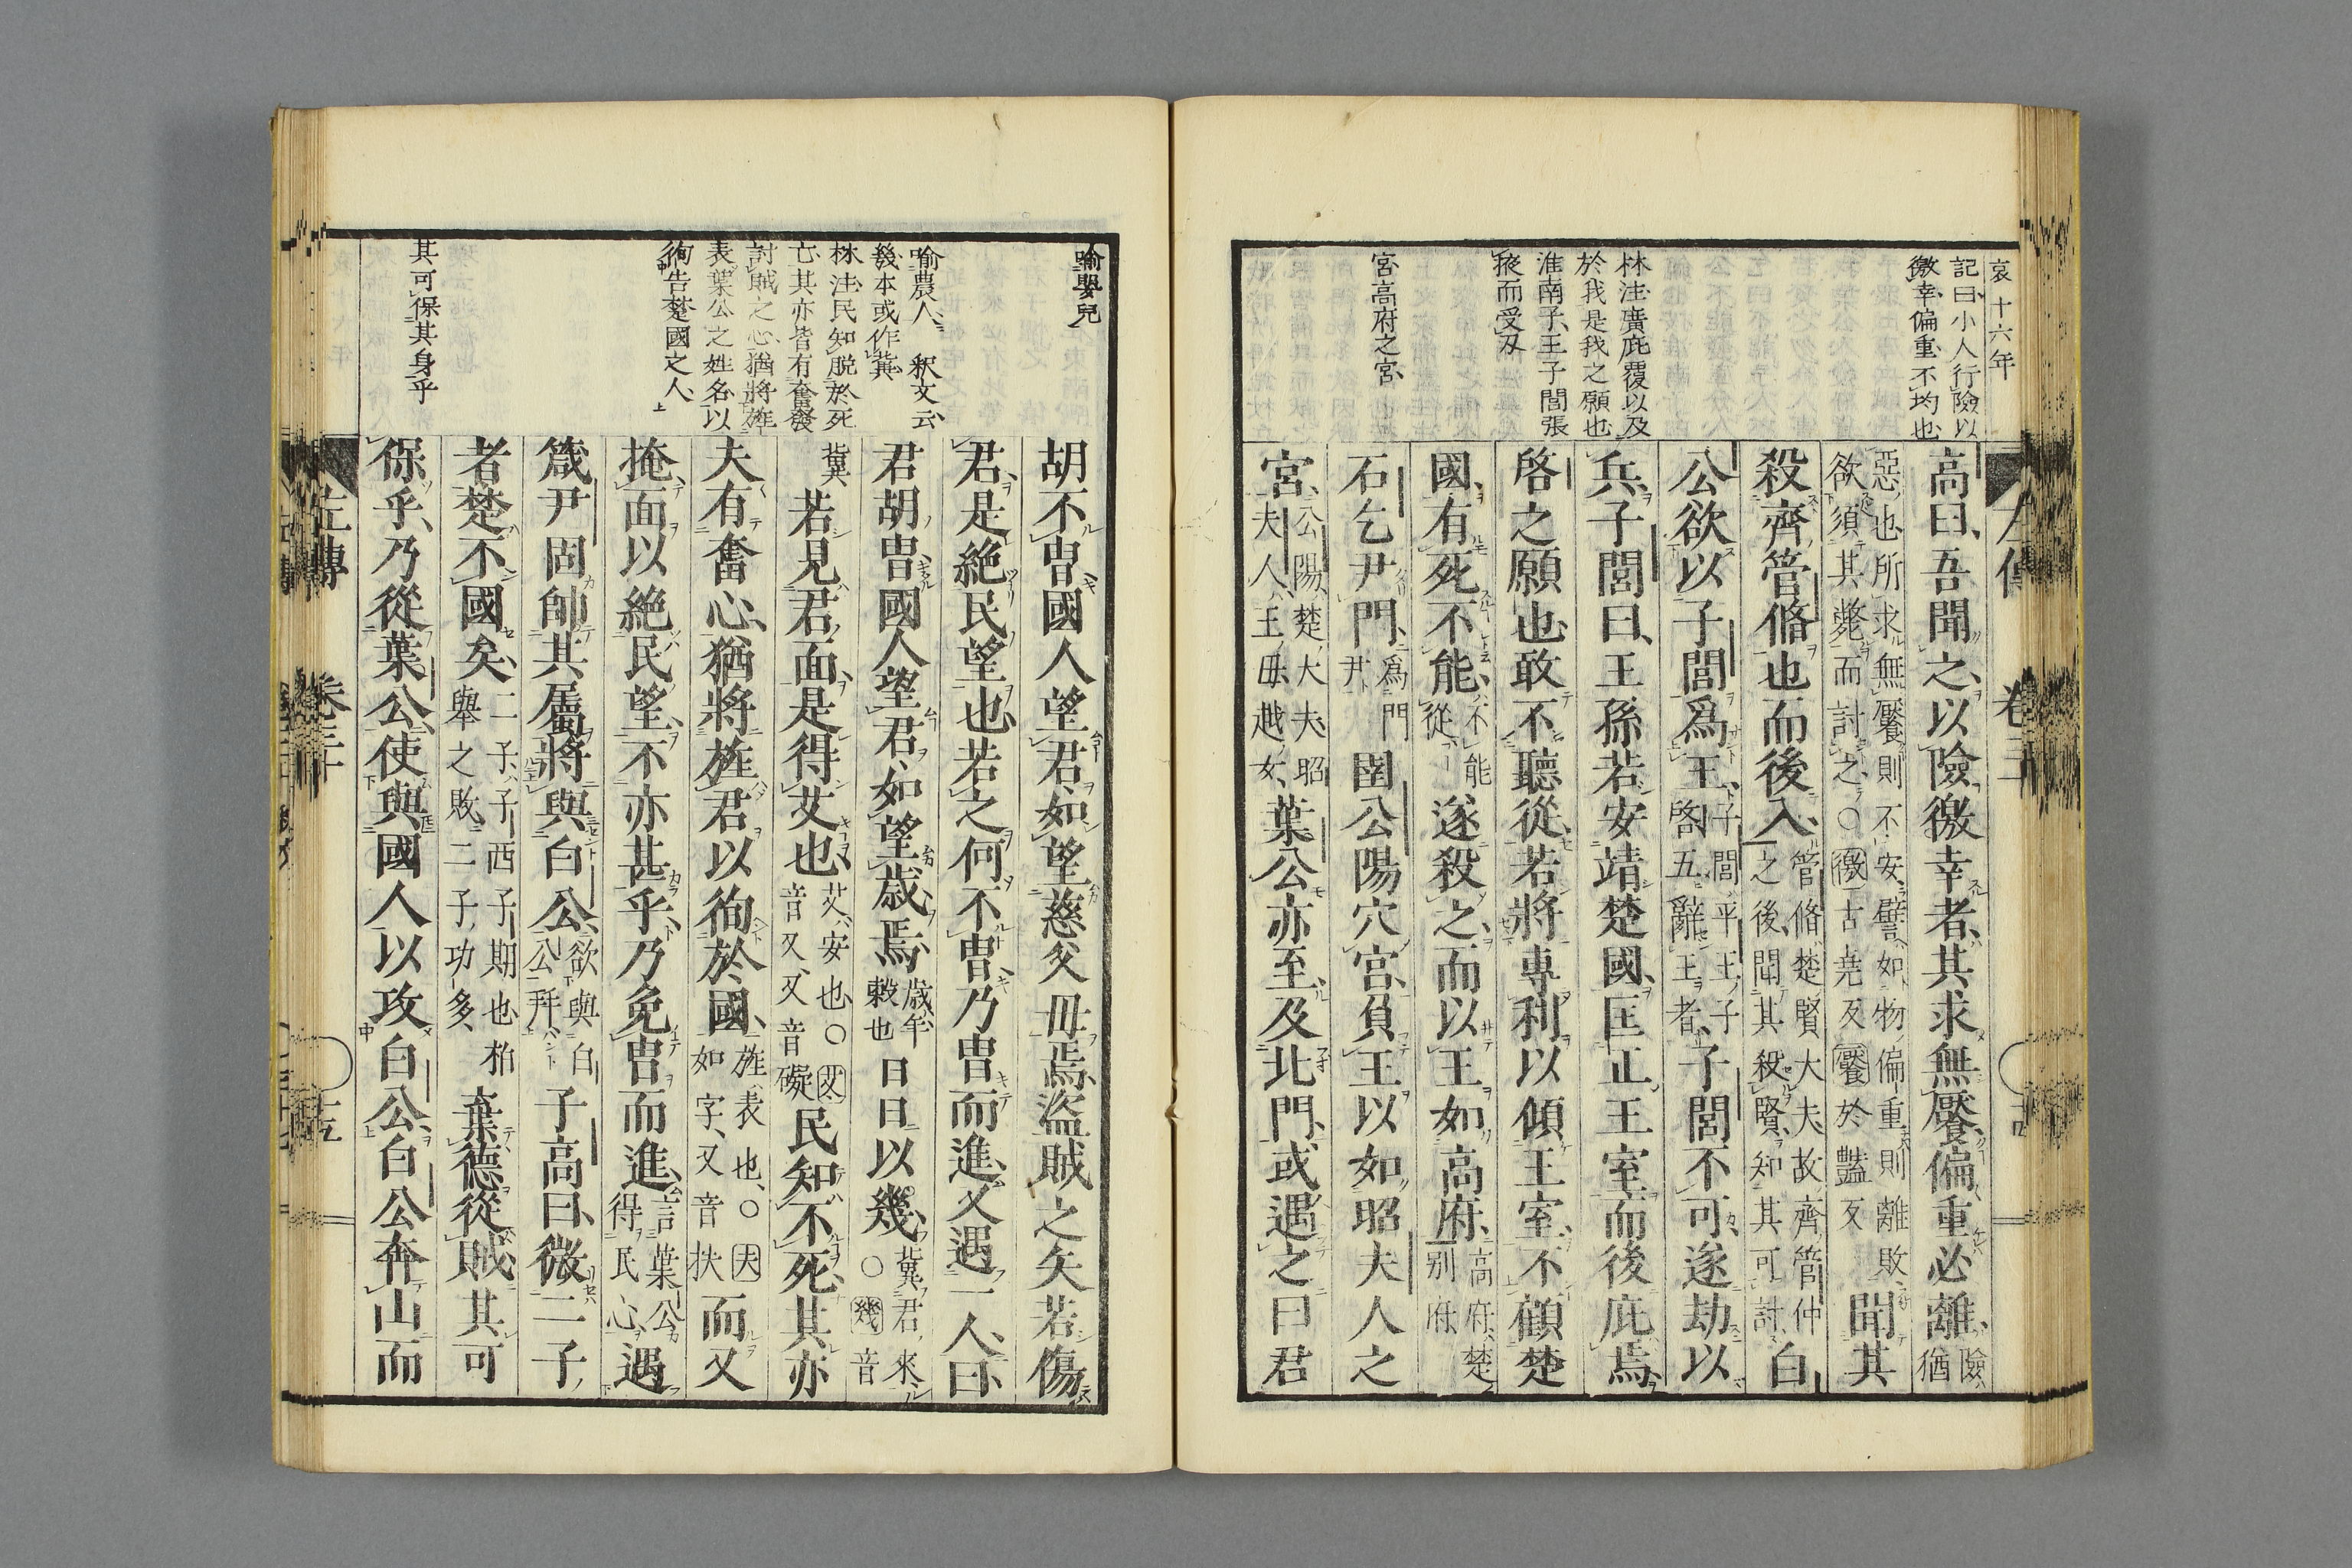 哀十六年
記曰小人行險以
徼幸偏重不均也
林注廣庇覆以及
於我是我之願也
淮南子王子閭張
掖而受刃
宮高府之宮
左傳 卷三
高曰、吾聞之、以險徼幸者、其求無饜、偏重必離、險猶
惡也所求無饜則不安譬如物偏重則離敗欲須其斃而討之○徼古堯反饜於豔反聞其
殺齊管脩也而後入、管脩楚賢大夫故齊管仲之後聞其殺賢知其可討白
公欲以子閭爲王、子閭平王子啓五辭王者子閭不可、遂劫以
兵、子閭曰、王孫若安靖楚國、匡正王室而後庇焉
啓之願也、敢不聽從、若將專利以傾王室、不顧楚
國、有死不能、不能從遂殺之、而以王如高府、高府楚别府
石乞尹門、爲門尹圉公陽穴宮、負王以如昭夫人之
宮、公陽楚大夫昭夫人王母越女葉公亦至、及北門、或遇之曰君
喻嬰兒
喻農人 釈文云
幾本或作兾
林注民知脱於死
亡其亦皆有奮發
討賊之心猶將旌
表葉公之姓名以
徇告楚國之人
其可保其身乎
胡不冑、國人望君、如望慈父母焉、盗賊之矢若傷
君、是絶民望也、若之何不冑、乃冑而進、又遇一人、曰
君胡冑、國人望君、如望歳焉、歳年穀也日日以幾、兾君來○幾音
兾若見君面、是得艾也、艾安也○艾音乂又音礙民知不死、其亦
夫有奮心、猶將旌君以徇於國、旌表也○夫如字又音扶而又
掩面以絶民望、不亦甚乎、乃免冑而進、言葉公得民心遇
箴尹固帥其屬將與白公、欲與白公并子高曰、微二子
者楚不國矣、二子子西子期也柏舉之敗二子功多棄德從賊、其可
保乎、乃從葉公、使與國人以攻白公、白公奔山而
左傳 卷三十